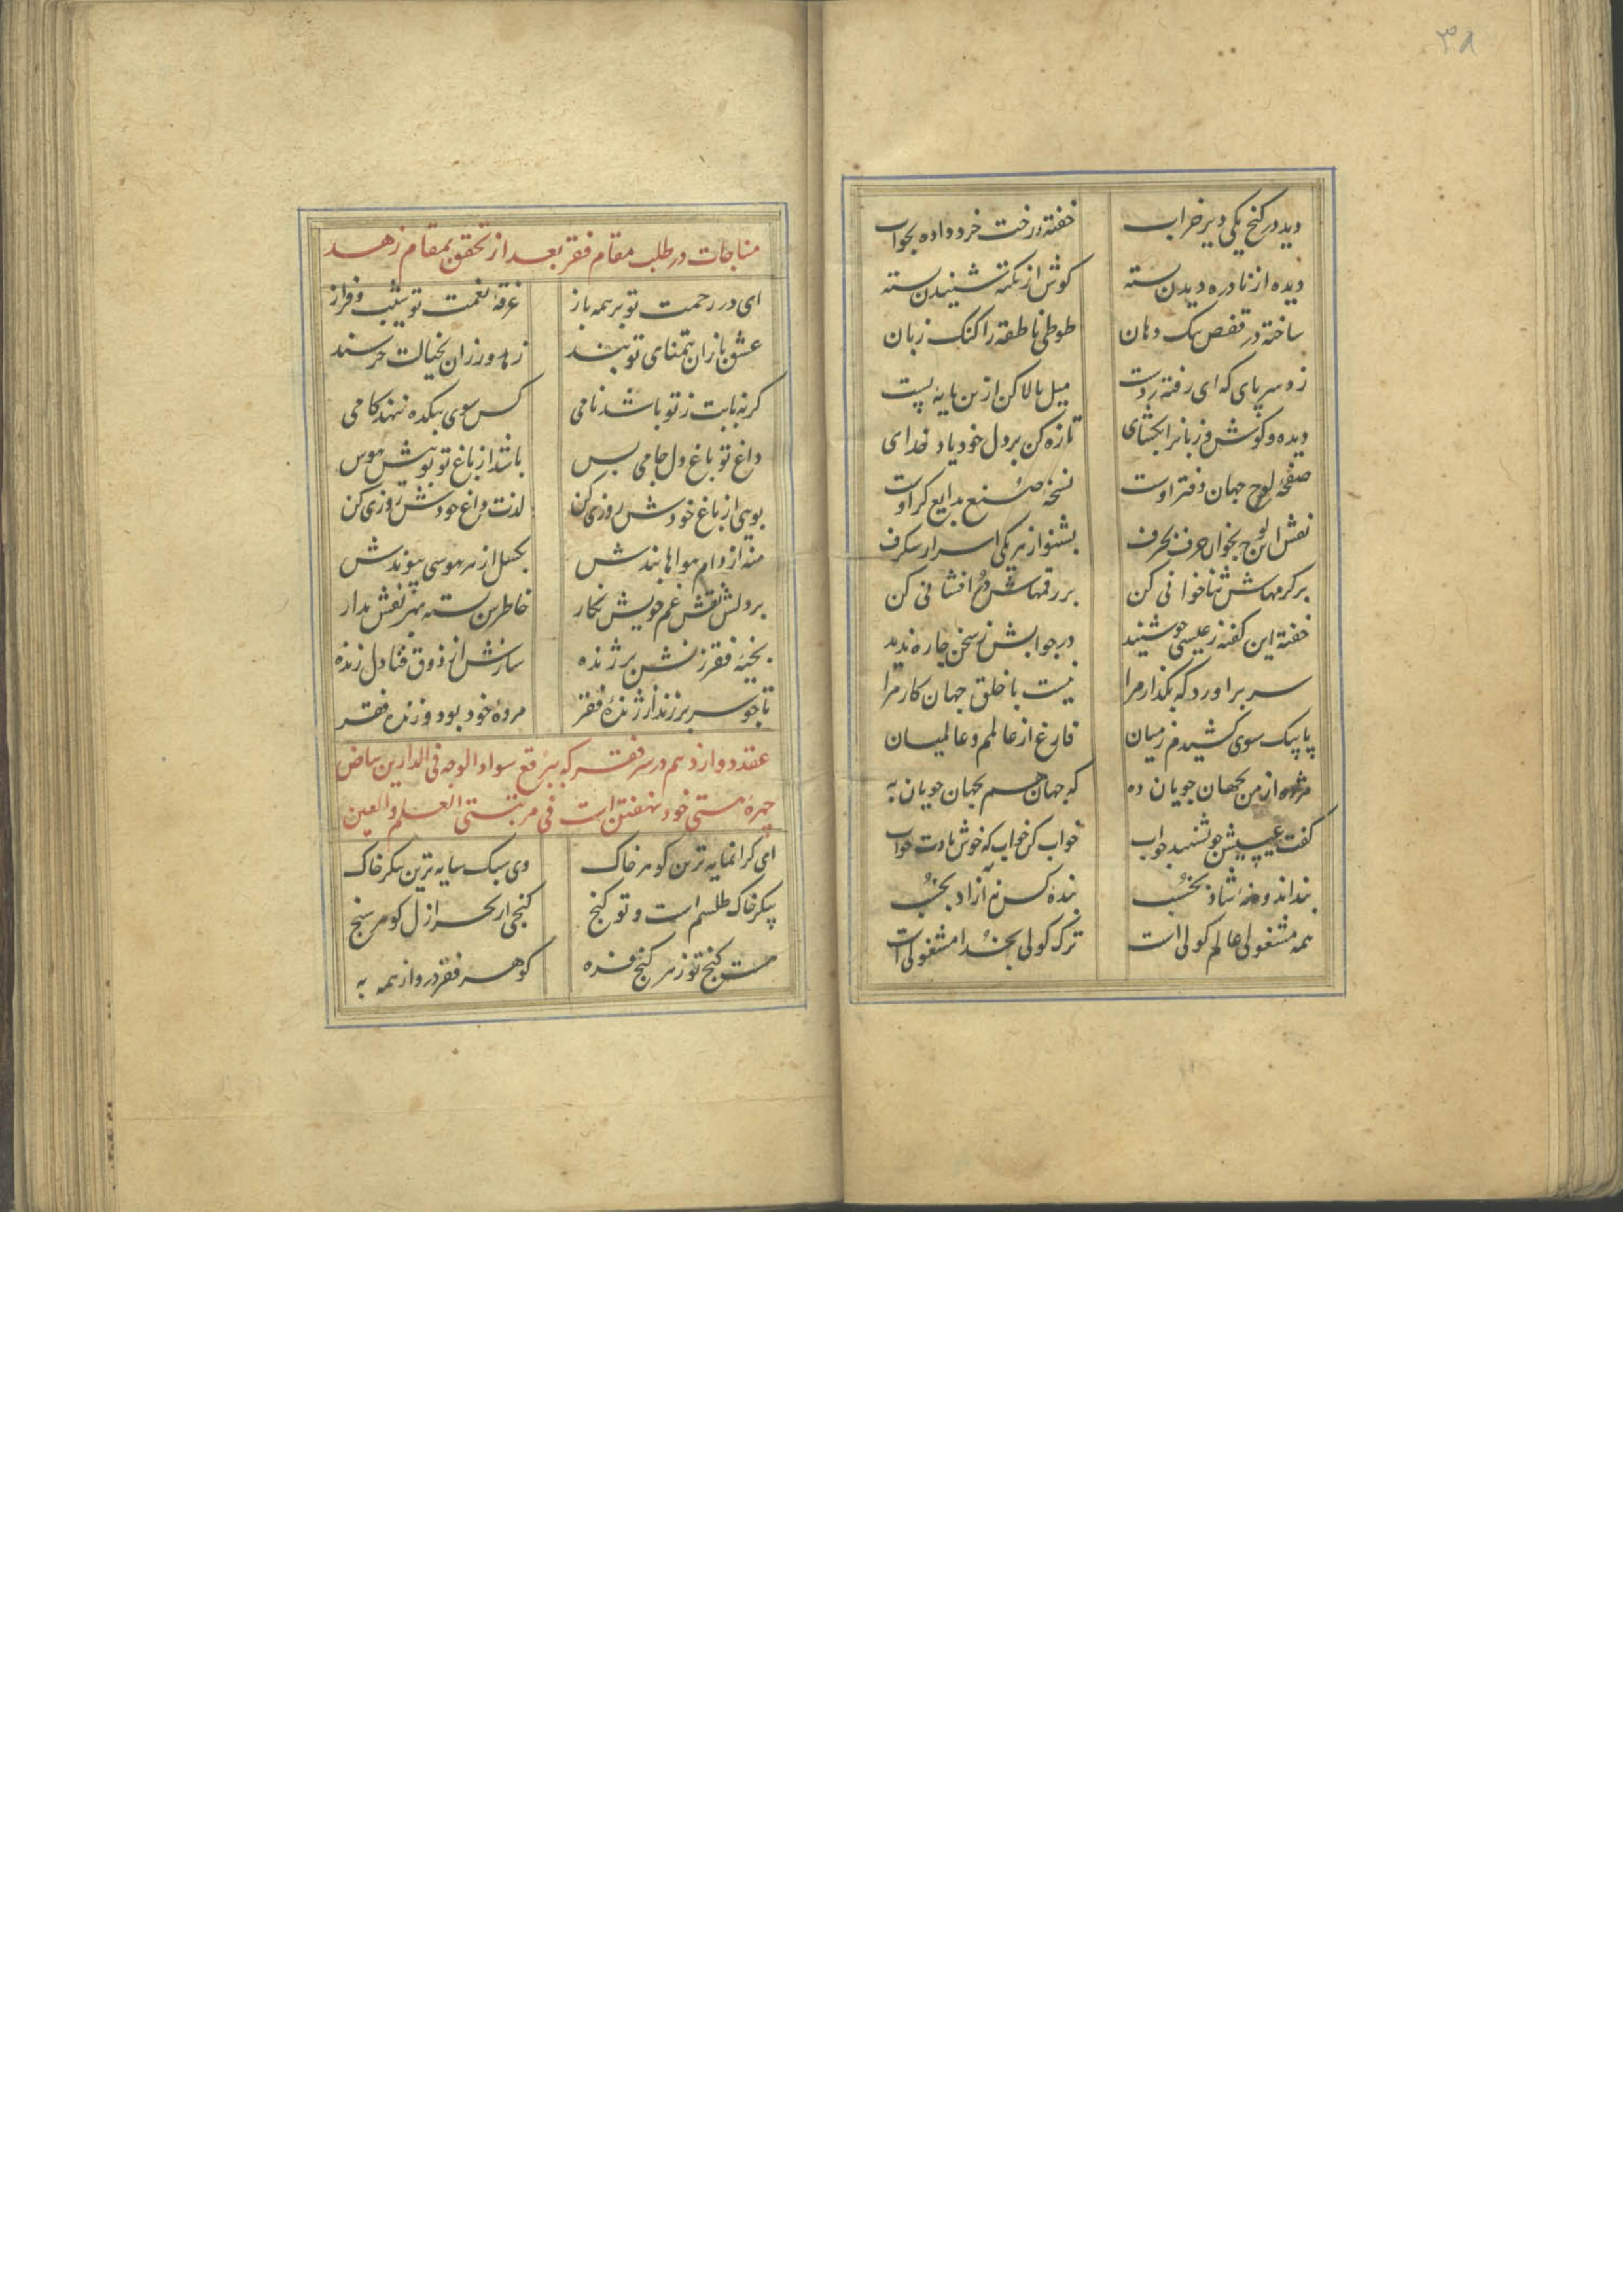 ۳۸
دید در کنج یکی دیر خراب خفته و رخت خرد داده بخواب
دیده از نادره دیدن بسته گوش از نکته شنیدن بسته
ساخته در قفص تنک دهان طوطی ناطقه را کنک زبان
زد سر پای که ای رفته ز دست میل بالا کن ازین پایهٔ پست
دیده و گوش و زبانرا بکشای تازه کن بر دل خود یاد خدای
صفحهٔ لوح جهان دفتر اوست نسخهٔ صنع بدایع کر اوست
نقش این لوح بخوان حرف بحرف بشنو از هر یکی اسرار شکرف
بر کرمهاش ثناخوانی کن بر رقمهاش درافشانی کن
خفته این گفته ز عیسی چو شنید در جوابش ز سخن چاره ندید
سر براورد که بکذار مرا نیست با خلق جهان کار مرا
پا بیک سوی کشیدم ز میان فارغ از عالمم و عالمیان
مژده از من بجهان جویان ده که جهان هم بجهان جویان به
گفت عیسیش چو بشنید جواب خواب کن خواب که خوش بادت خواب
بند اندوه نهٔ شاد بخسب بندهٔ کس نهٔ آزاد بخسب
همه مشغولی عالم کولی است ترک کولی بخدا مشغولی است
مناجات در طلب مقام فقر بعد از تحقق بمقام زهد
ای در رحمت تو بر همه باز غرقهٔ نعمت تو شیب و فراز
عشق بازان بتمنای تو بند زهد ورزان بخیالت خرسند
گر نه بابت ز تو باشد نامی کس سوی میکده ننهد کامی
داغ تو باغ دل جامی بس باشد از باغ تو بوییش هوس
بویی از باغ خودش روزی کن لذت داغ خودش روزی کن
منه از دام هواها بندش بکسل از هر هوسی پیوندش
بر دلش نقش غم خویش نگار خاطرش بسته بهر نقش مدار
بخیهٔ فقر زنش بر ژنده سازش از ذوق فنا دل زنده
تا چو سر برزند از ژندهٔ فقر مردهٔ خود بود و زندهٔ فقر
عقد دوازدهم در سر فقر که ببرقع سواد الوجه فی الدارین بیاض
چهرهٔ هستی خود نهفتن است فی مرتبتی العلم والعین
ای گرانمایه ترین گوهر خاک وی سبک سایه ترین پیکر خاک
پیکر خاک طلسم است و تو گنج گنجی از بحر ازل گوهر سنج
هست گنج تو ز هر گنج فزه گوهر فقر در او از همه به